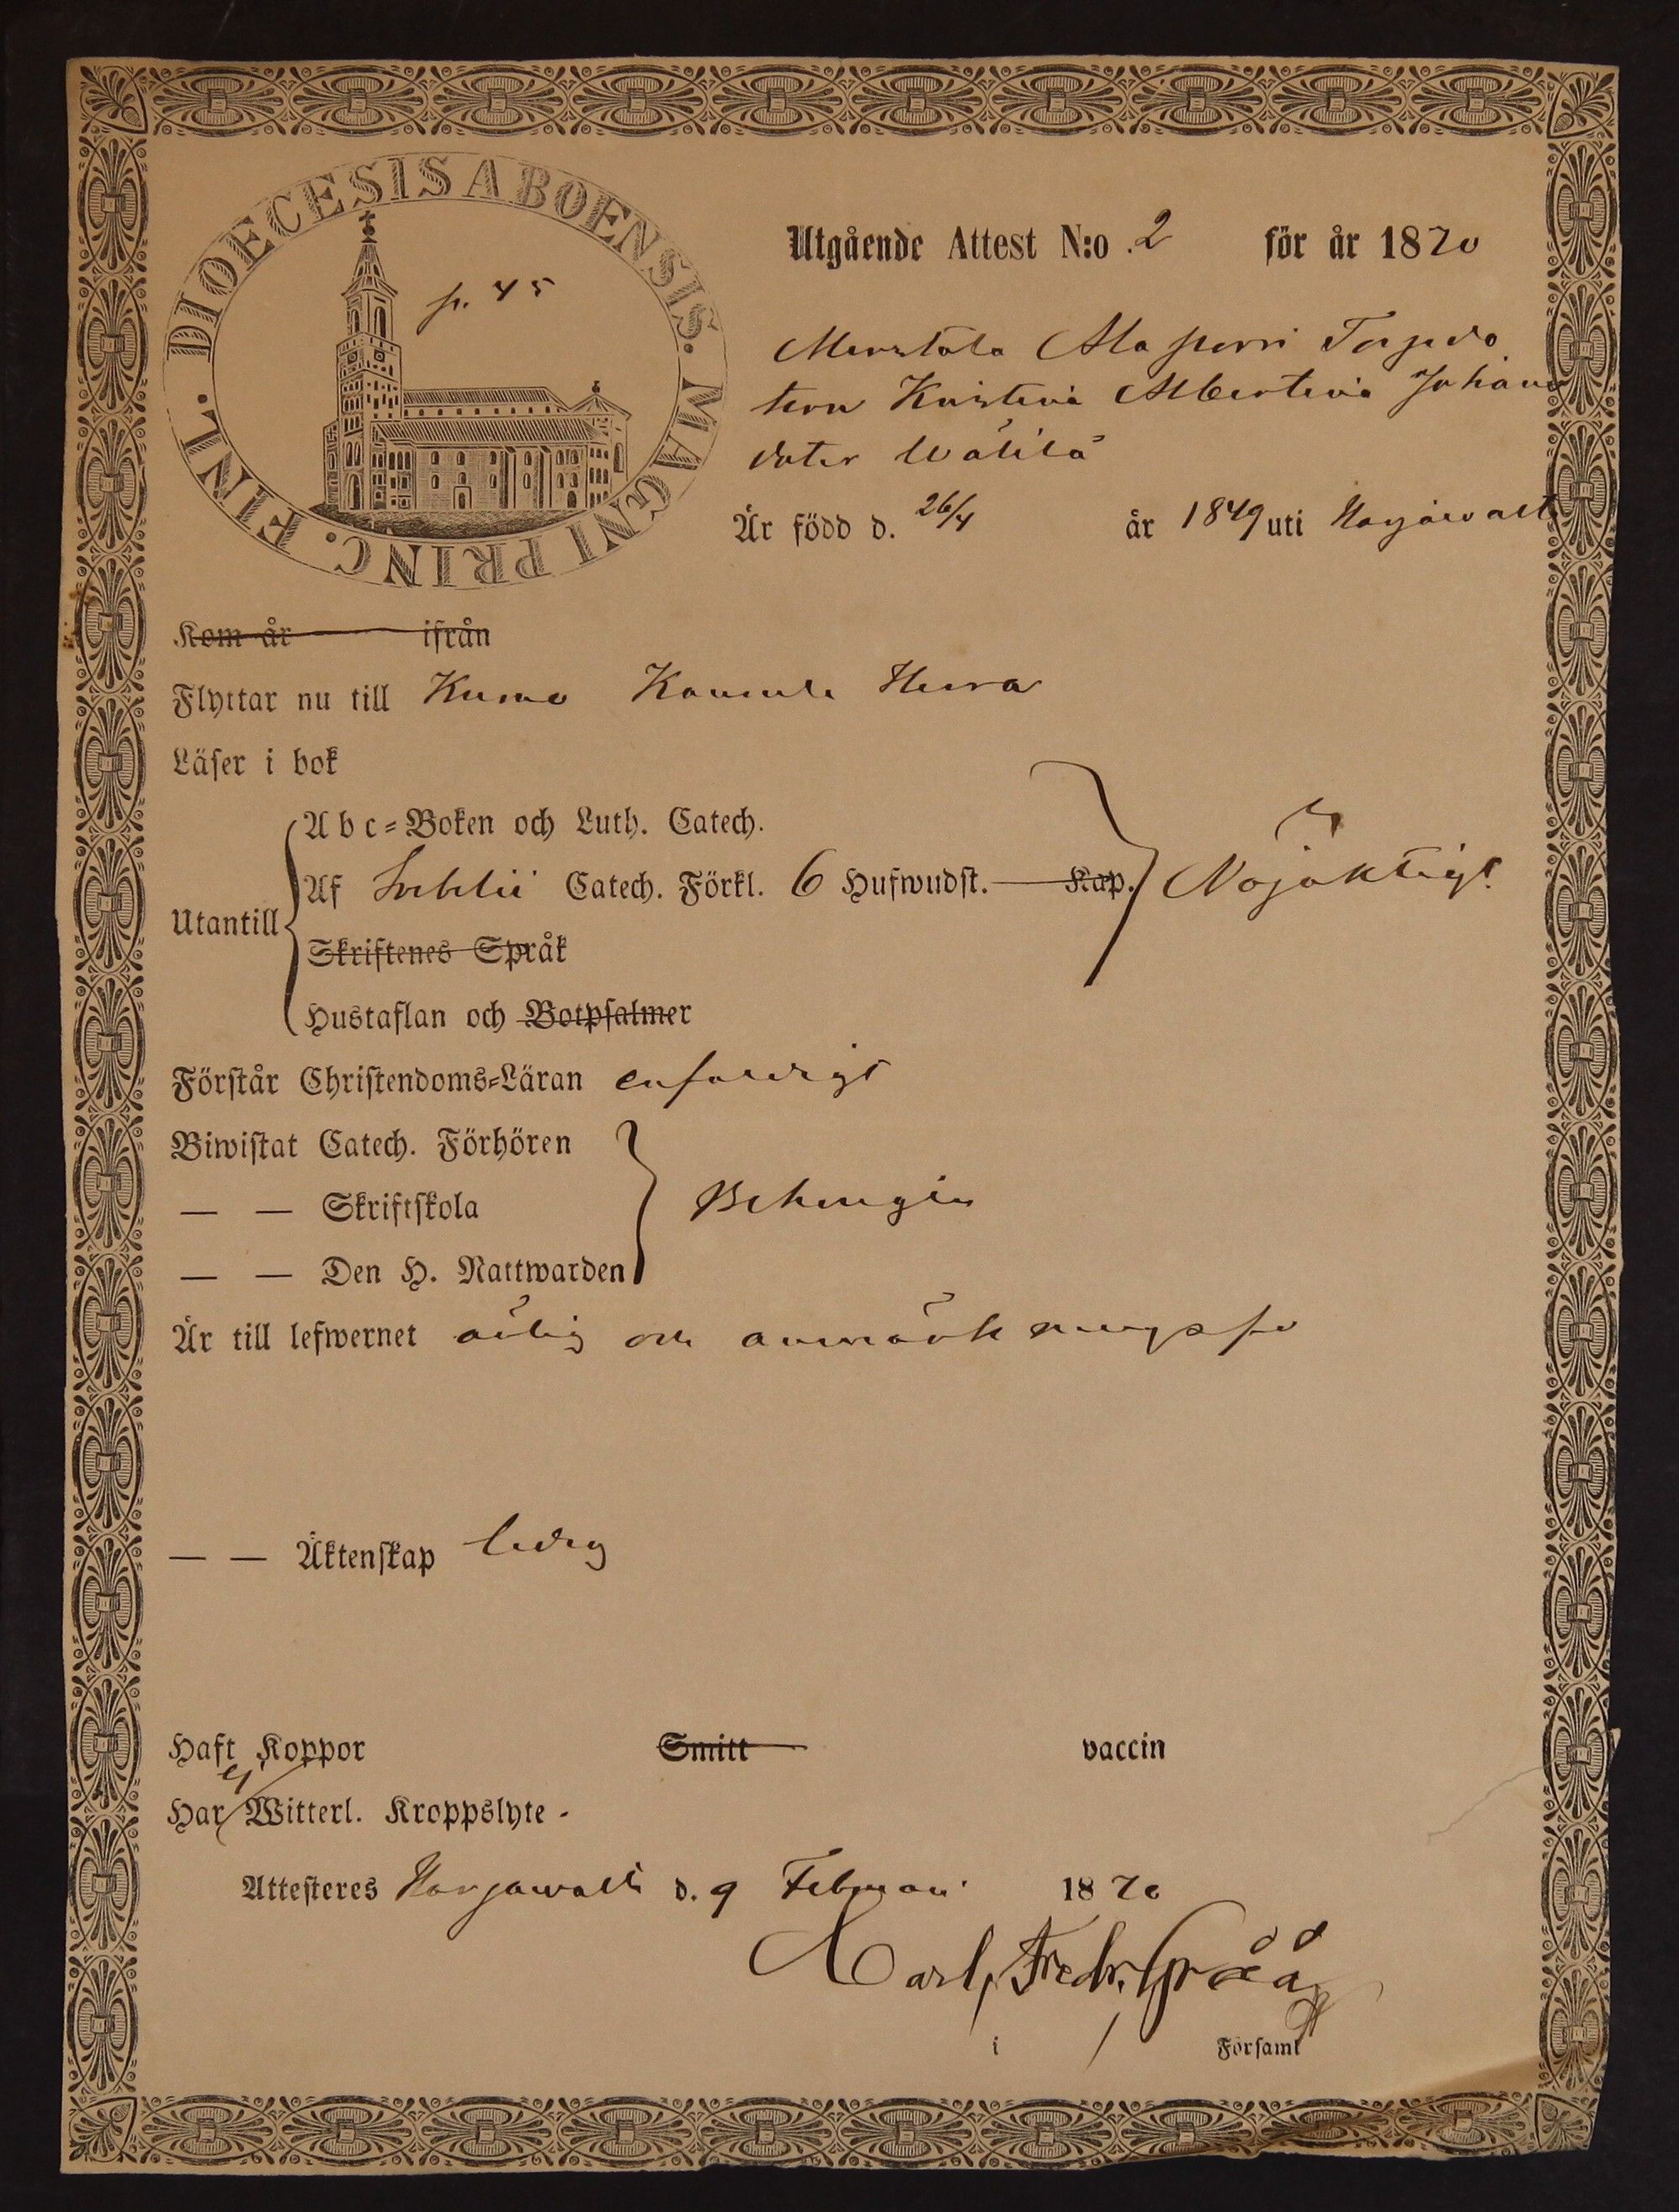 DIOECESIS ABOENSIS. MAGNI PRINC. FINL.
p. 45
Utgående Attest N:o 2 för år 1870
Torpedo
tern Kristina Albertina Johans
doter Wälilä
Är född d. 26/4 år 1849 uti Norjawalt
Kom år ifrån
Flyttar nu till Kumo
Läser i bok
Abc-Boken och Luth. Catech.
Af Svebelii Catech. Förkl. 6 Hufwudst. Kap. Nöjaktigt
Utantill
Skriftenes Språk
Hustaflan och Botpsalmer
Förstår Christendoms-Läran enfaldigt
Biwistat Catech. Förhören
— — Skriftskola Behörigen
— — Den H. Nattwarden
Är till lefwernet ärlig och anmärkningsfri
— — Äktenskap ledig
Haft Koppor Smitt vaccin
Har ej Witterl. Kroppslyte
Attesteres Norjawalt d. 9 Februari 1870
Carl Fredr.
i Församl